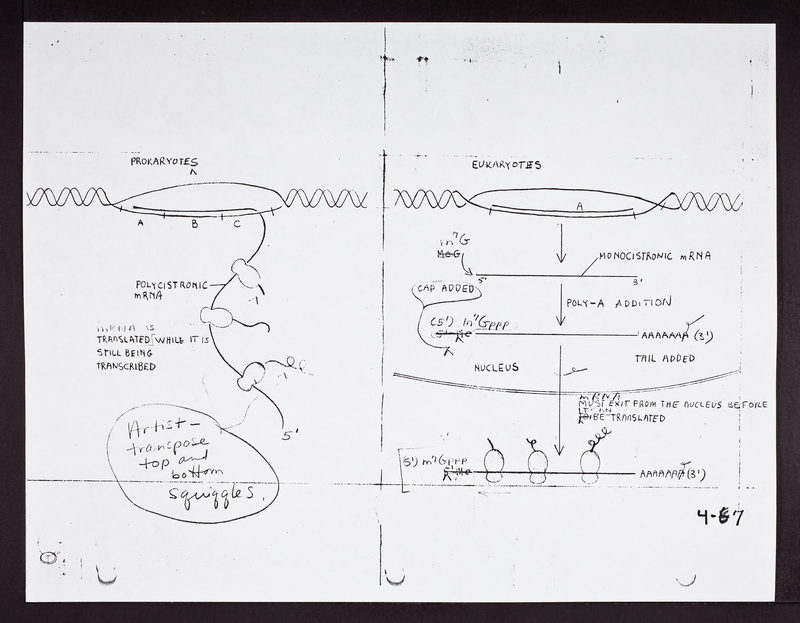 PROKARYOTES
A B C
POLYCISTRONIC
mRNA
mRNA IS
TRANSLATED WHILE IT IS
STILL BEING
TRANSCRIBED
5'
Artist—
transpose
top and
bottom
squiggles.
EUKARYOTES
A
m⁷G
MeG
MONOCISTRONIC mRNA
5' 3'
CAP ADDED
POLY-A ADDITION
(5') m⁷Gppp
AAAAAAA (3')
TAIL ADDED
NUCLEUS
mRNA
MUST EXIT FROM THE NUCLEUS BEFORE
IT CAN
BE TRANSLATED
5') m⁷Gppp
AAAAAAA (3')
4-67